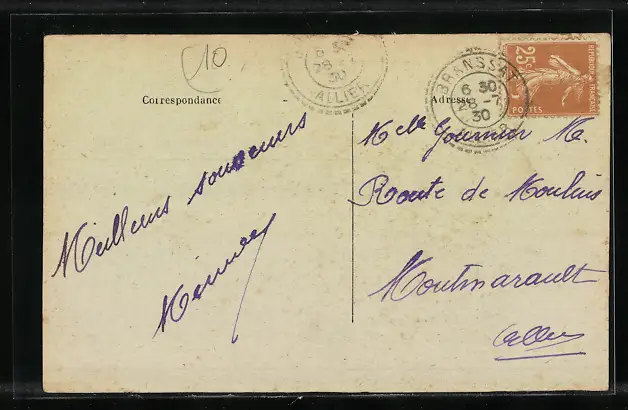 10
Correspondance
28
30
ALLIER
Meilleurs souvenirs
Adresse
BRANSSAT
6 30
28 -7
30
25c
REPUBLIQUE FRANCAISE
POSTES
Melle Gournier M.
Route de Moulins
Montmarault
Allier